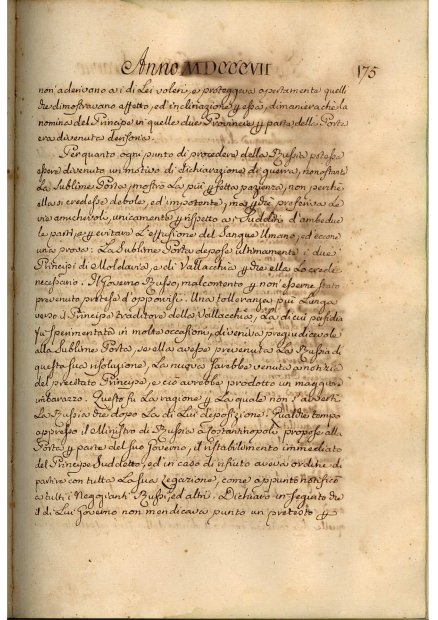 Anno MDCCCVII 175
non aderivano a i di Lei voleri, e proteggeva apertamente quelli
che dimostravano affetto, ed inclinazione p essa, di maniera che la
nomina del Principe in quelle due Provincie p parte della Porta
era divenuta derisoria.
Per quanto ogni punto di procedere della Russia potesse
essere divenuto un motivo di dichiarazione di guerra, nonostante
La Sublime Porta mostrò La più pfetta pazienza, non perchè
ella si credesse debole, ed impotente, ma pchè preferiva Le
vie amichevoli, unicamente p rispetto a i Sudditi d'ambedue
le parti, e p evitare L'effusione del Sangue Umano, ed eccone
una prova: La Sublime Porta depose ultimamente i due
Principi di Moldavia, e di Vallacchia pchè ella Lo credè
necessario. Il Governo Russo, malcontento p non esserne stato
prevenuto pretese d'opporvisi. Una tolleranza più Lunga
verso il Principe traditore della Vallacchia, La di cui perfidia
fu sperimentata in molte occasioni, diveniva pregiudicevole
alla Sublime Porta, se ella avesse prevenuta La Russia di
questa sua risoluzione, La nuova sarebbe venuta a notizia
del prestato Principe, e ciò avrebbe prodotto un maggiore
imbarazzo. Questo fu La ragione p La quale non s'avvertì
La Russia che dopo La di Lui deposizione. Qualche tempo
appresso il Ministro di Russia a Costantinopoli propose alla
Porta p parte del suo Governo, il ristabilimento immediato
del Principe Suddetto, ed in caso di rifiuto aveva ordine di
partire con tutta La sua Legazione, come appunto notificò
a tutti i Negozianti Russi, ed altri. Dichiarò in seguito che
il di Lui Governo non mendicava punto un pretesto p